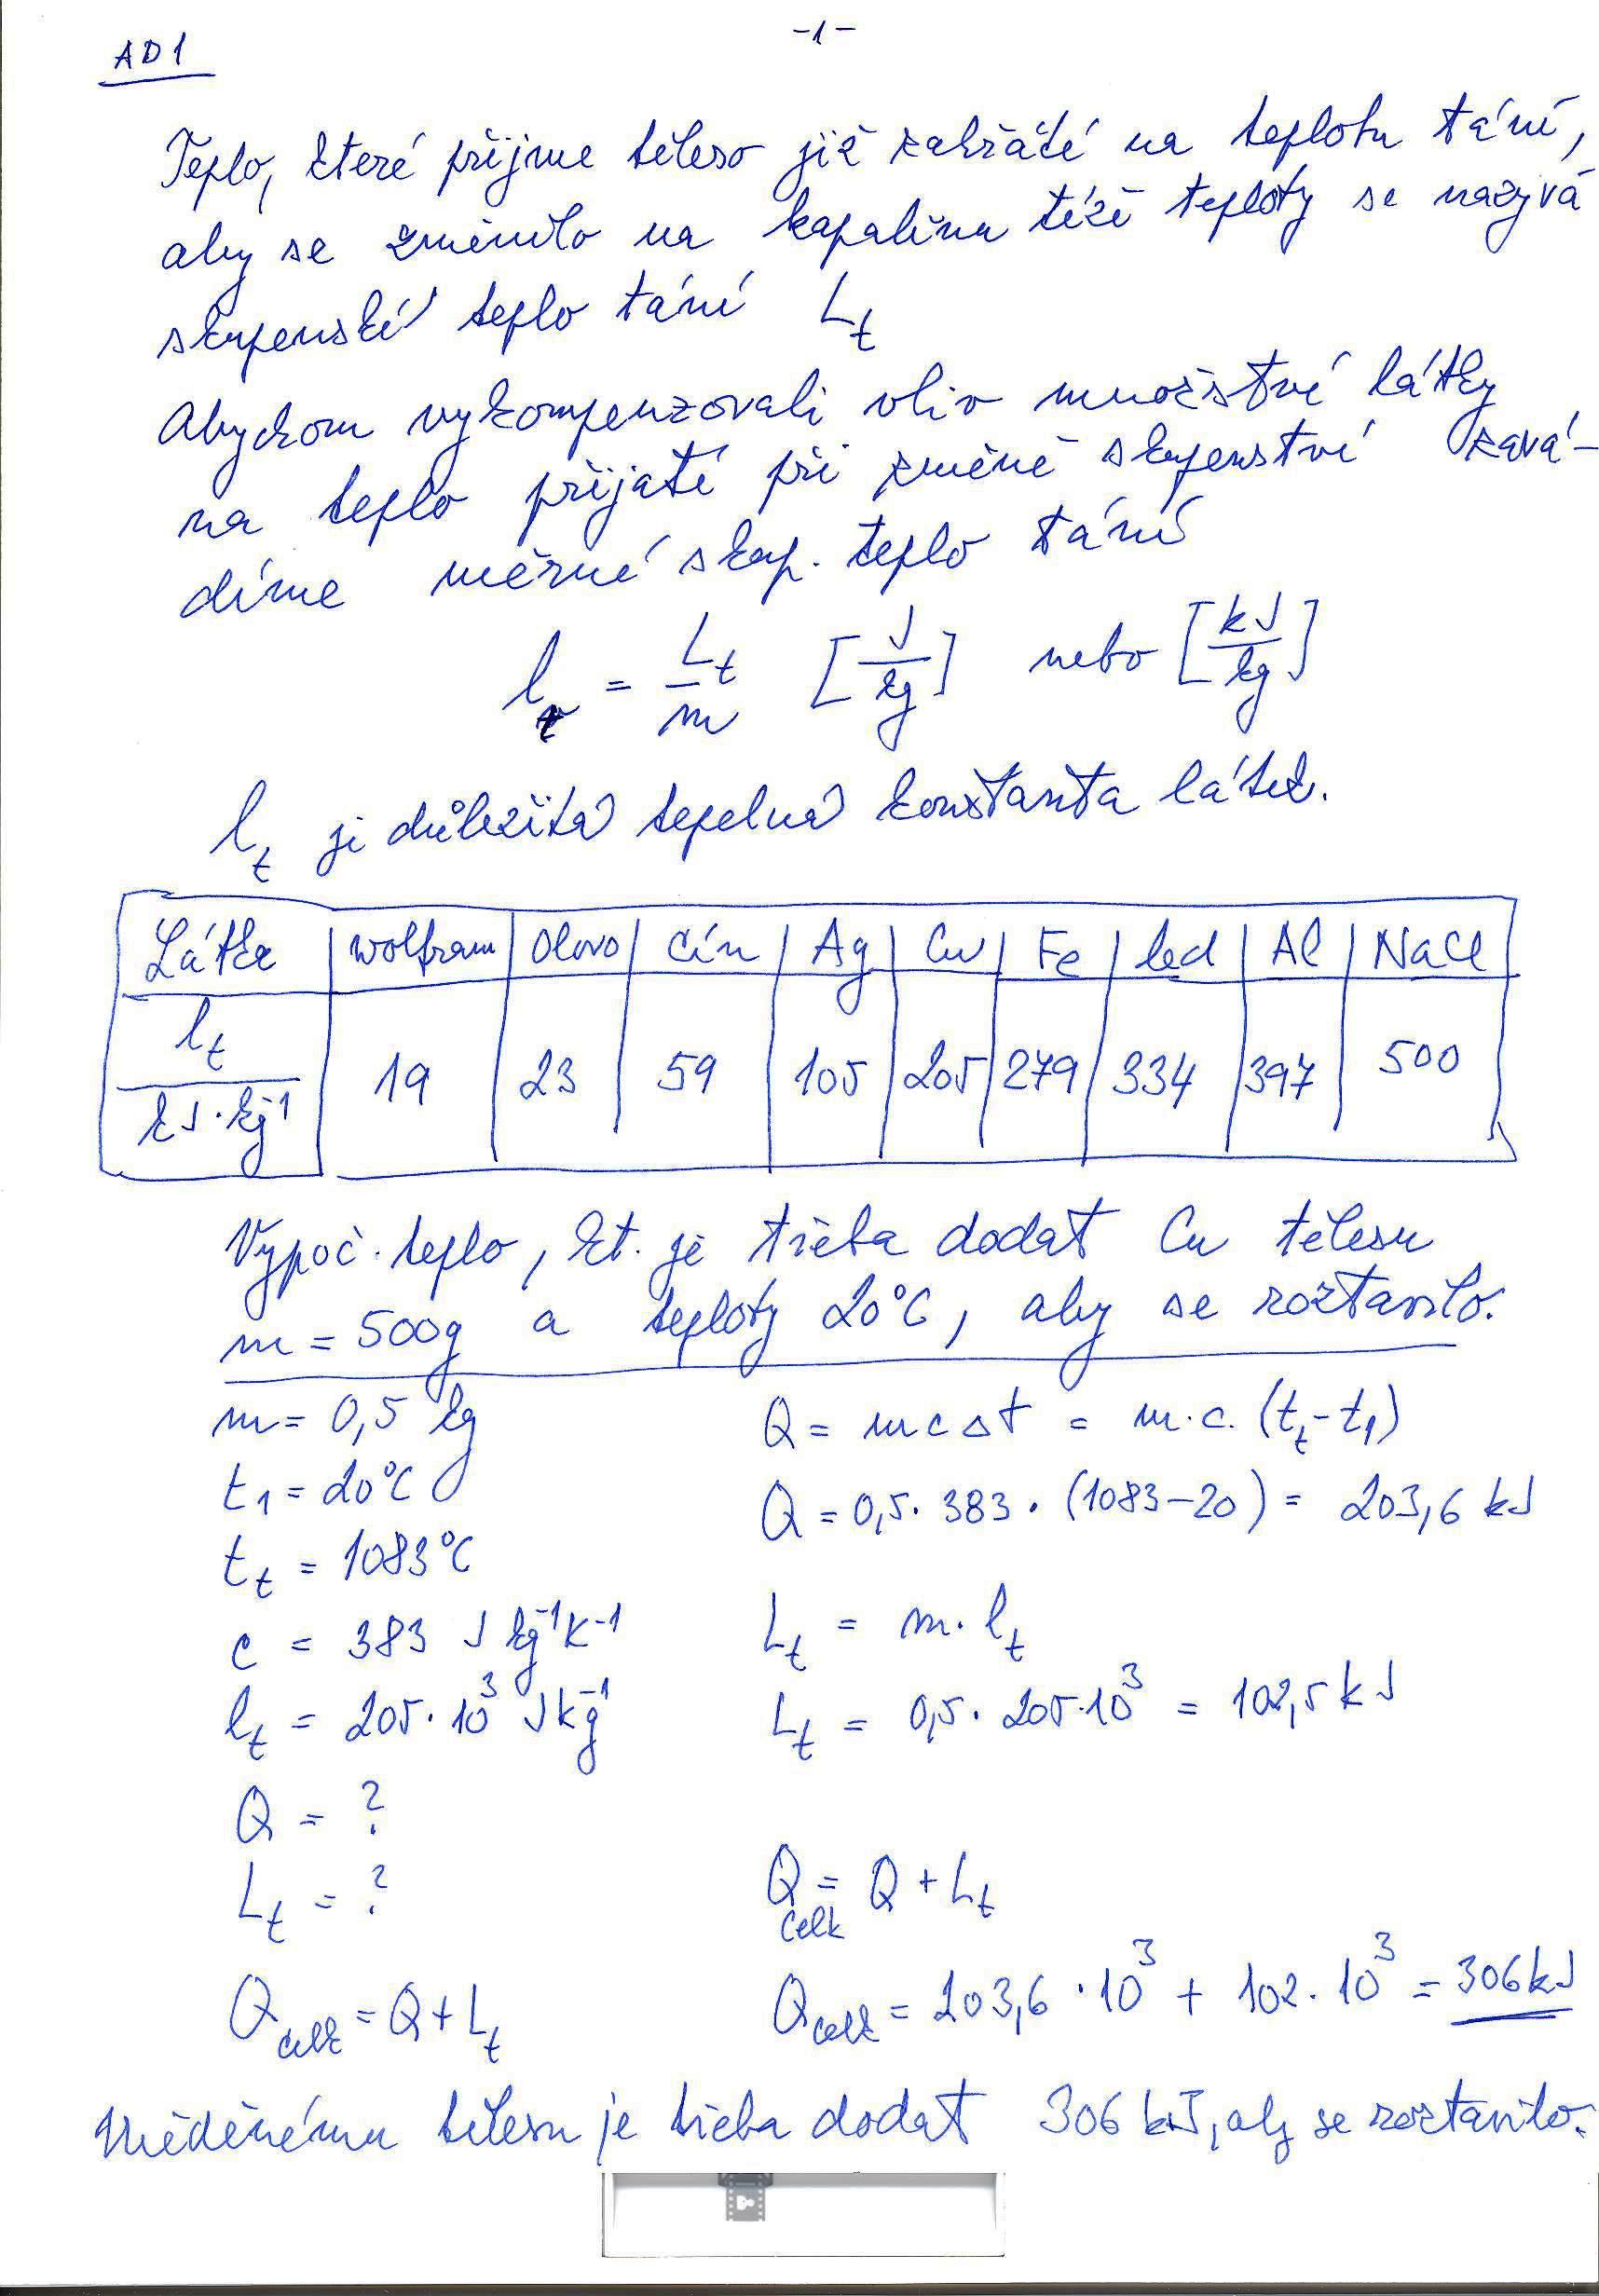 -1-
AD1
Teplo, které přijme těleso již zahřáté na teplotu tání,
aby se změnilo na kapalinu téže teploty se nazývá
skupenské teplo tání Lt
Abychom vykompenzovali vliv množství látky
na teplo přijaté při změně skupenství zavá-
díme měrné skup. teplo tání
lt = Lt/m [J/kg] nebo [kJ/kg]
lt je důležitá tepelná konstanta látek.
Látka | wolfram | Olovo | Cín | Ag | Cu | Fe | led | Al | NaCl
lt / kJ·kg⁻¹ | 19 | 23 | 59 | 105 | 205 | 279 | 334 | 397 | 500
Vypoč. teplo, kt. je třeba dodat Cu tělesu
m = 500g a teploty 20°C, aby se roztavilo.
m = 0,5 kg Q = mcΔt = m·c·(tt-t1)
t1 = 20°C Q = 0,5·383·(1083-20) = 203,6 kJ
tt = 1083°C
c = 383 J kg⁻¹K⁻¹ Lt = m·lt
lt = 205·10³ Jkg⁻¹ Lt = 0,5·205·10³ = 102,5 kJ
Q = ?
Lt = ? Qcelk = Q + Lt
Qcelk = Q + Lt Qcelk = 203,6·10³ + 102·10³ = 306kJ
Měděnému tělesu je třeba dodat 306 kJ, aby se roztavilo.